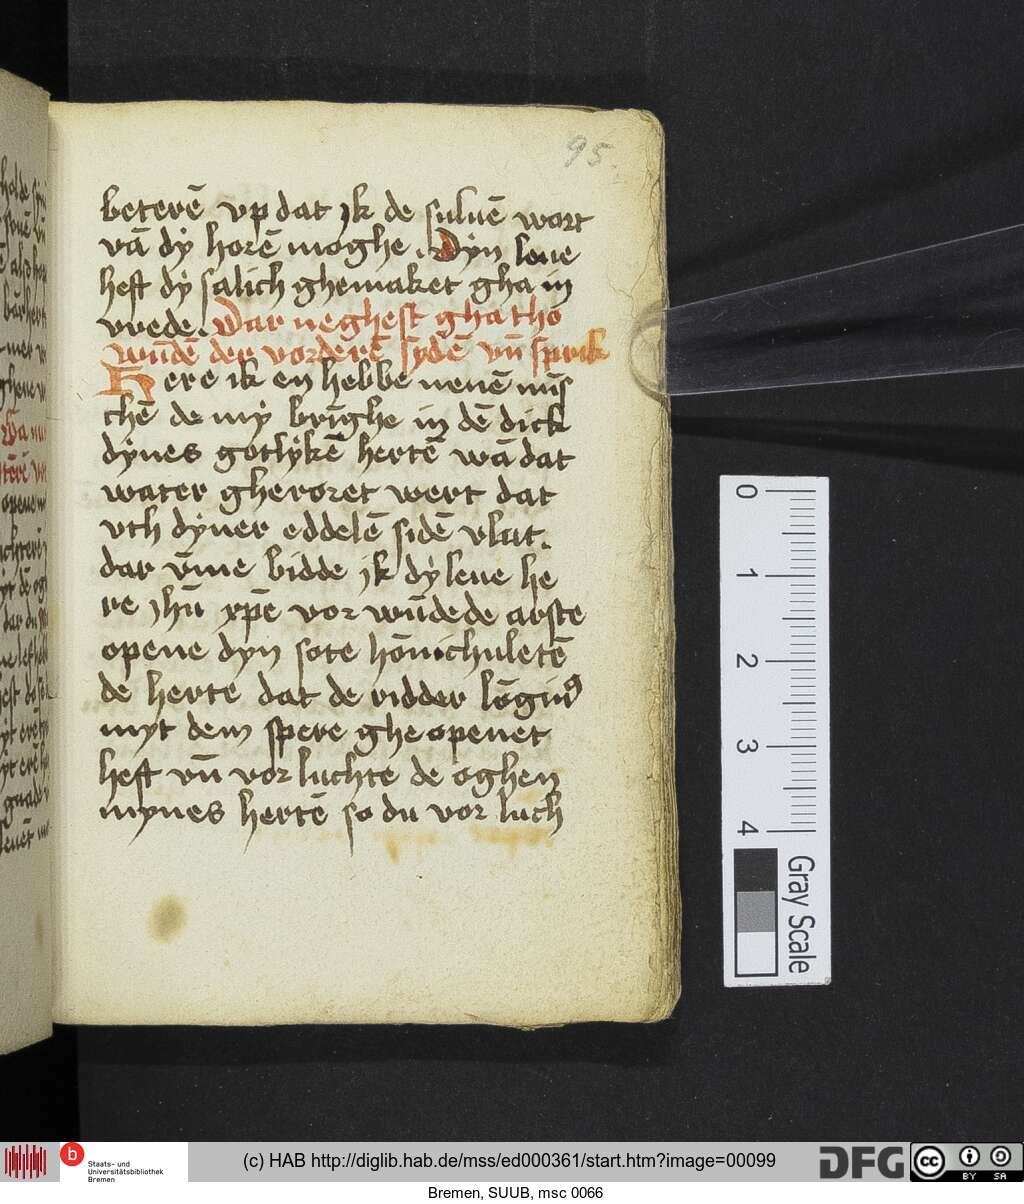 95.
beterē vp dat ik de suluē wort
vā dẏ horē moghe. Dẏn loue
heft dẏ salich ghemaket gha in
vrede. Dar neghest gha tho
wūdē der vorderē sẏdē vn̄ sprik
Here ik en hebbe nenē mīs
chē de mẏ brīghe in dē dick
dẏnes gotlẏkē hertē wā dat
water gheroret wert dat
vth dẏner eddelē sidē vlut.
dar v̄me bidde ik dẏ leue he
re ihū xpē vor wūdede arste
opene dyn sote hōnichuletē
de herte dat de ridder lōginꝰ
myt dem spere ghe openet
heft vn̄ vor luchte de oghen
mynes hertē so du vor luch
0
1
2
3
4
Gray Scale
b
Staats- und
Universitätsbibliothek
Bremen
(c) HAB http://diglib.hab.de/mss/ed000361/start.htm?image=00099
DFG
cc
BY SA
Bremen, SUUB, msc 0066